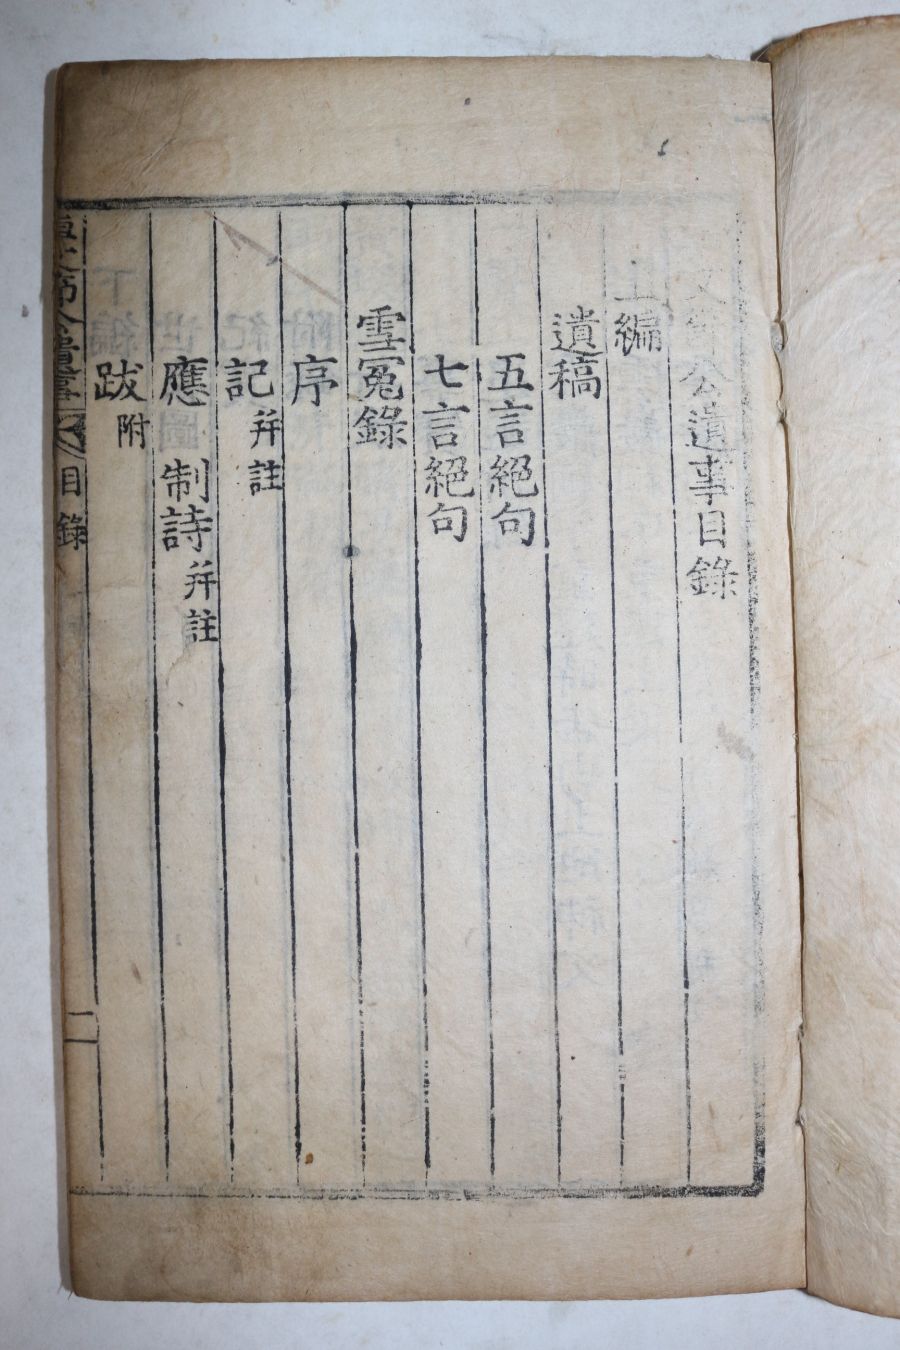 文節公遺事目錄
上編
遺稿
五言絕句
七言絕句
雪冤錄
序
記 幷註
應 制詩 幷註
跋 附
目錄
二